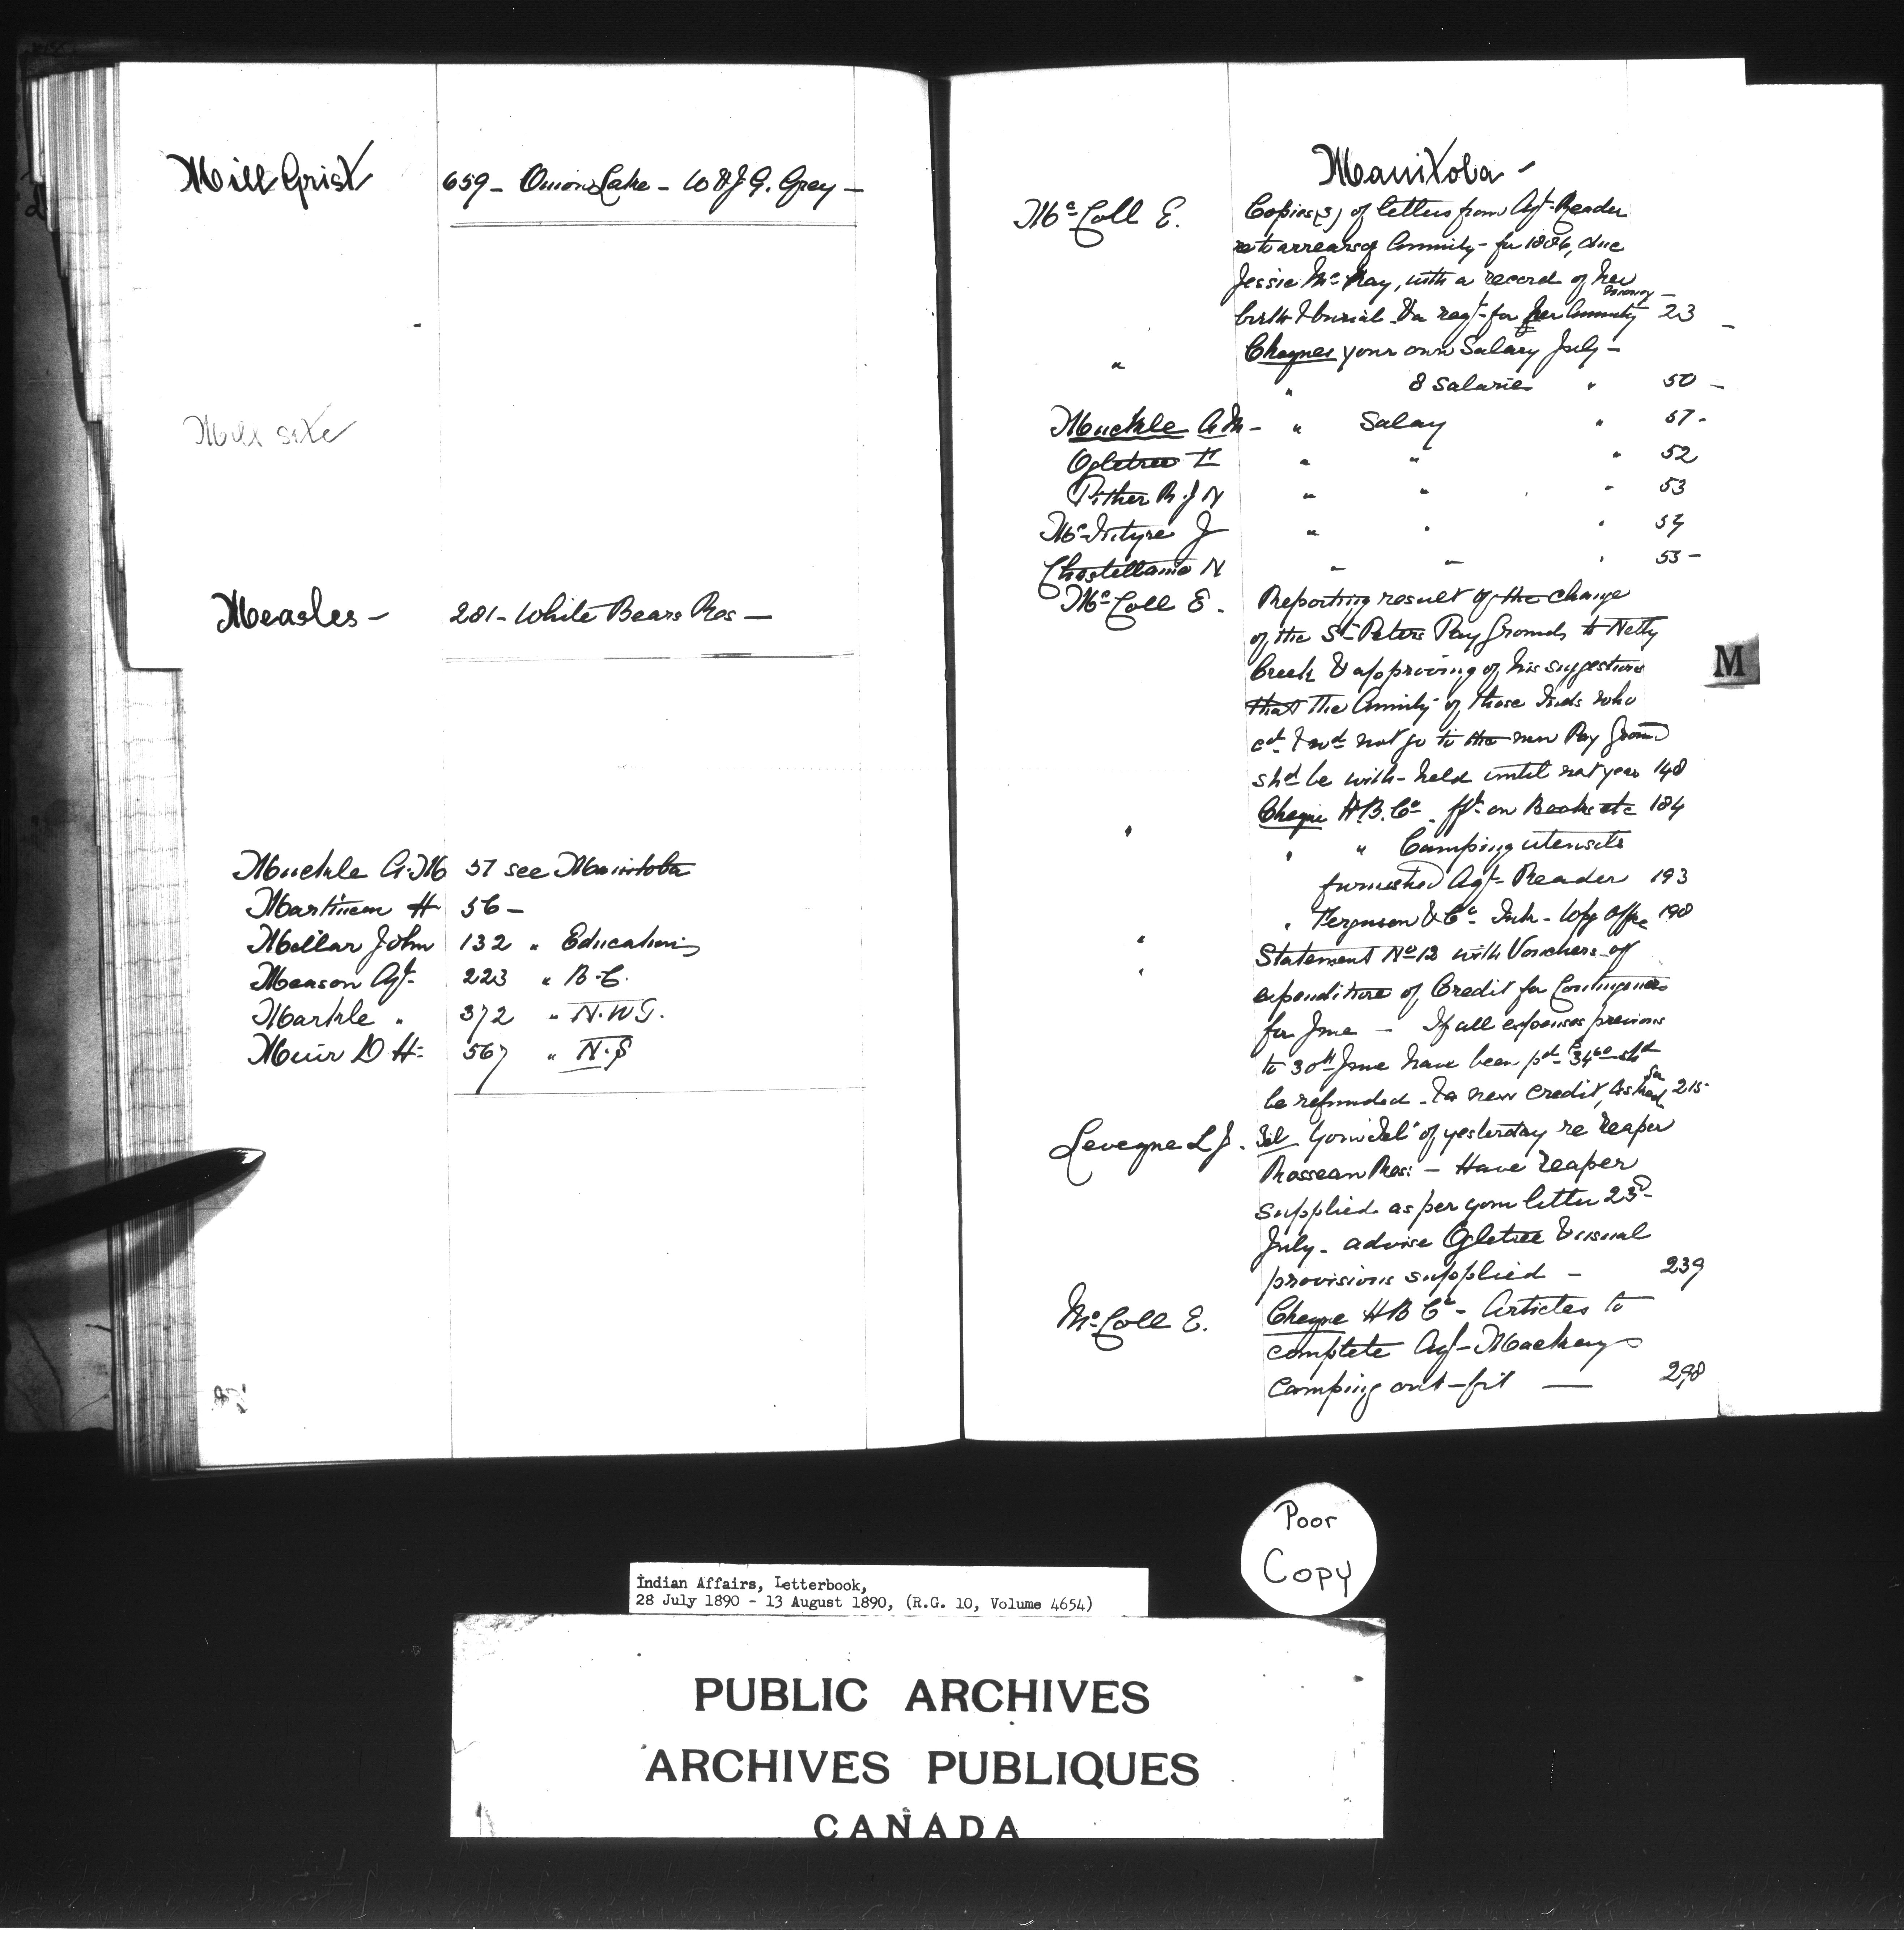 Mill Grist 659 - Onion Lake - W & J G. Grey -
Mill site
Measles - 281 - White Bears Res -
Muckle A.M 57 see Manitoba
Martineau H 56 -
Millar John 132 " Education
Meason Agt. 223 " B.C.
Markle " 372 " N.W.T.
Muir D H. 567 " N.S
Manitoba -
McColl E. Copies (3) of letters from Agt. Reader
re to arrears of Annuity - for 1886, due
Jessie McKay, with a record of her
birth & burial - & a reqt. for her Annuity money - 23 -
" Cheques your own Salary July -
" 8 Salaries " 50 -
Muckle A M - " Salary " 57 -
Ogletree F " " " 52
Pither R. J N " " " 53
McIntyre J " " " 54
Chastellaine N " " " 55 -
McColl E. Reporting result of the change
of the St. Peters Pay Grounds to Netly
Creek & approving of his suggestions
that the Annuity of those Inds who
cd. & wd. not go to the new Pay Ground
shd be with-held until nxt year 148
" Cheque H.B. Co. frt. on Books etc 184
" " Camping utensils
furnished Agt. Reader 193
" " Ferguson & Co. Ink - Wpg Office 198
" Statement No 12 with Vouchers of
expenditure of Credit for Contingencies
for June - If all expenses previous
to 30th June have been pd. $34.60 shd
be refunded - & a new credit asked for 215
Levegne L J. Tel Your Tel of yesterday re reaper
Rosseau Res: - Have reaper
supplied as per your letter 23d
July - advise Ogletree & usual
provisions supplied - 239
McColl E. Cheque H B Co - Articles to
complete Agt - Mackays
Camping out-fit — 298
M
Poor
Copy
Indian Affairs, Letterbook,
28 July 1890 - 13 August 1890, (R.G. 10, Volume 4654)
PUBLIC ARCHIVES
ARCHIVES PUBLIQUES
CANADA